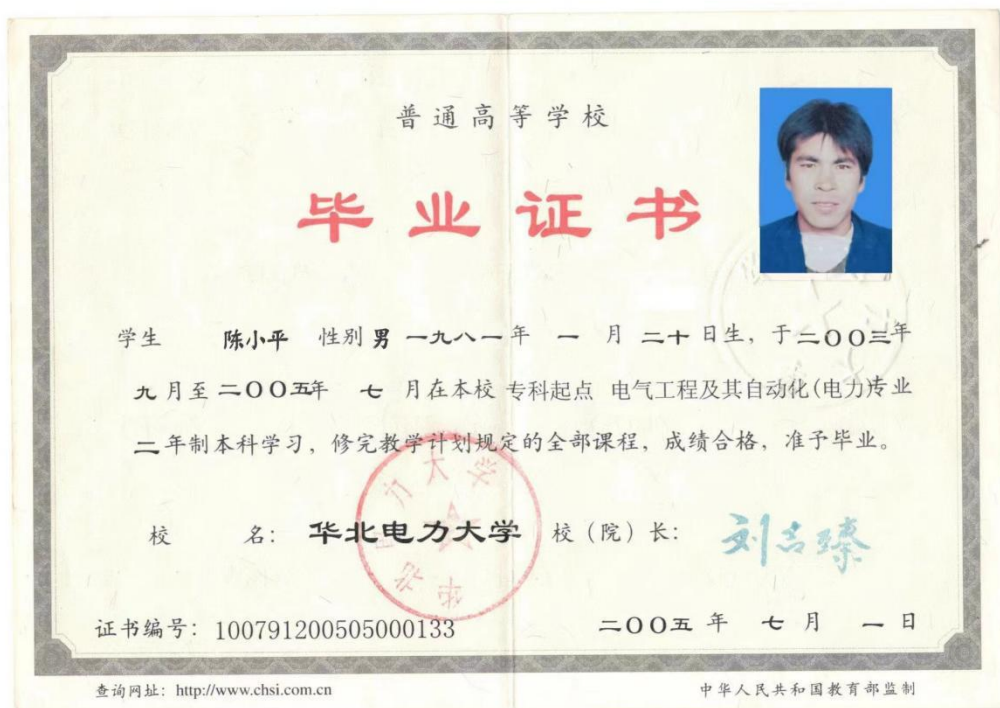 普通高等学校
毕业证书
学生 陈小平 性别 男 一九八一年 一 月 二十日生，于二〇〇三年
九月至二〇〇五年 七 月在本校 专科起点 电气工程及其自动化(电力)专业
二年制本科学习，修完教学计划规定的全部课程，成绩合格，准予毕业。
华北电力大学
校 名： 华北电力大学 校（院）长： 刘吉臻
证书编号：100791200505000133 二〇〇五 年 七 月 一 日
查询网址：http://www.chsi.com.cn 中华人民共和国教育部监制